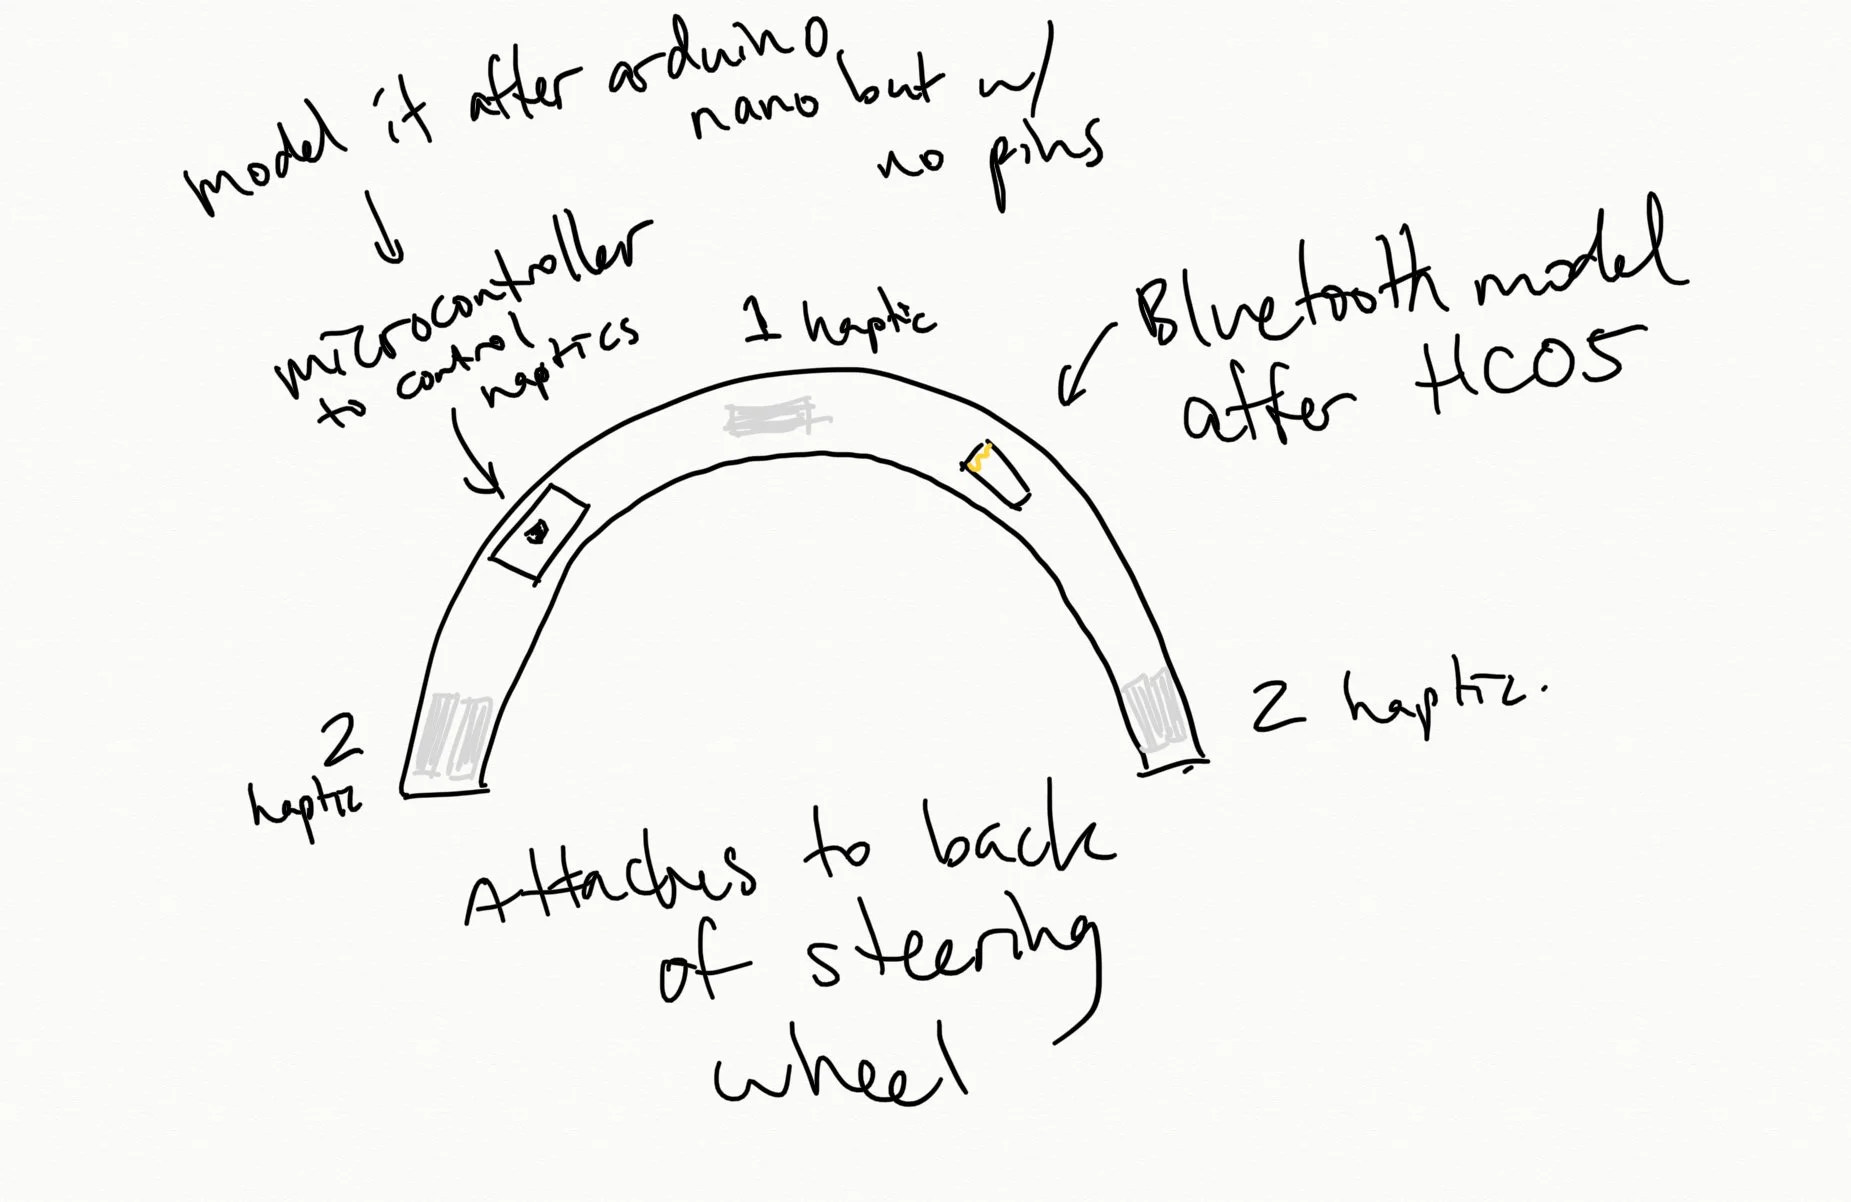 model it after arduino
nano but w/
no pins
microcontroller
to control
haptics
1 haptic
Bluetooth model
after HC05
2
haptic
2 haptic.
Attaches to back
of steering
wheel